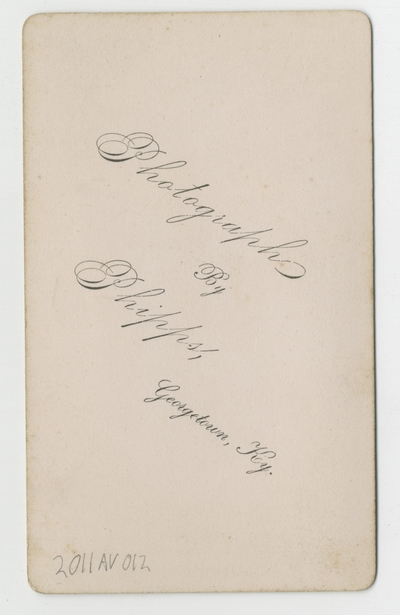 Photograph
By
Phipps,
Georgetown, Ky.
2011AV012